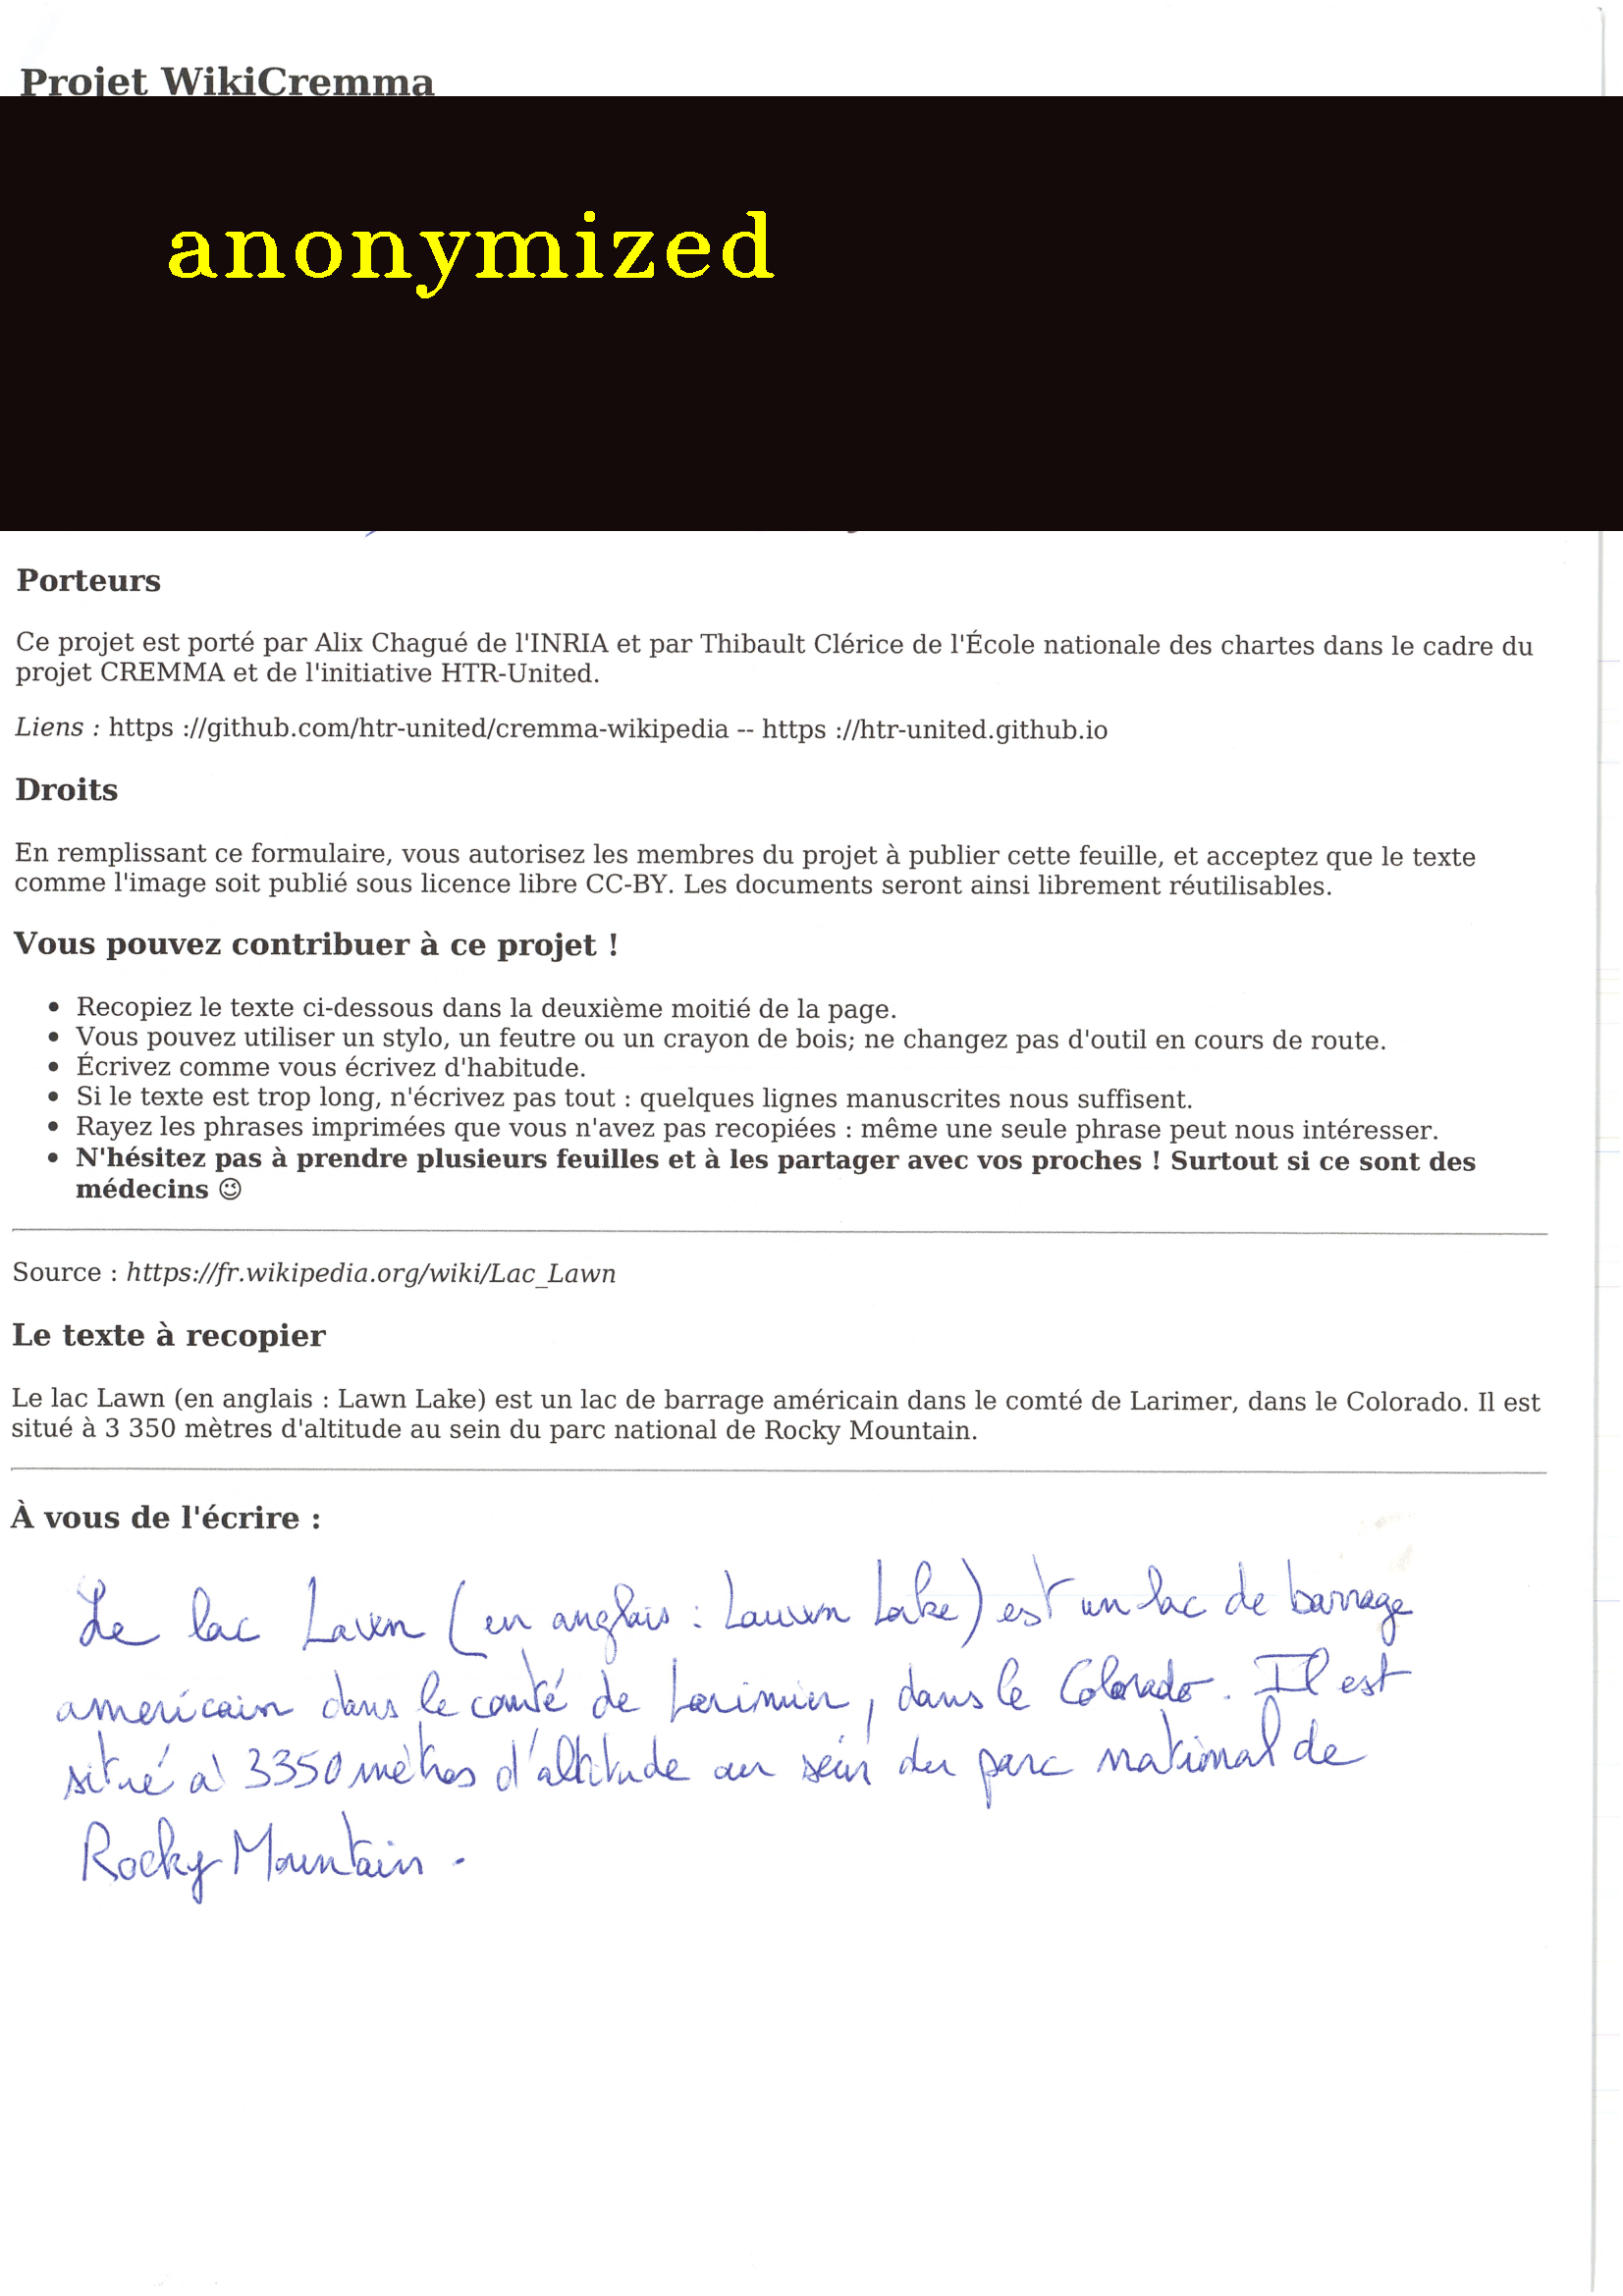 Projet WikiCremma
anonymized
Porteurs
Ce projet est porté par Alix Chagué de l'INRIA et par Thibault Clérice de l'École nationale des chartes dans le cadre du
projet CREMMA et de l'initiative HTR-United.
Liens : https ://github.com/htr-united/cremma-wikipedia -- https ://htr-united.github.io
Droits
En remplissant ce formulaire, vous autorisez les membres du projet à publier cette feuille, et acceptez que le texte
comme l'image soit publié sous licence libre CC-BY. Les documents seront ainsi librement réutilisables.
Vous pouvez contribuer à ce projet !
• Recopiez le texte ci-dessous dans la deuxième moitié de la page.
• Vous pouvez utiliser un stylo, un feutre ou un crayon de bois; ne changez pas d'outil en cours de route.
• Écrivez comme vous écrivez d'habitude.
• Si le texte est trop long, n'écrivez pas tout : quelques lignes manuscrites nous suffisent.
• Rayez les phrases imprimées que vous n'avez pas recopiées : même une seule phrase peut nous intéresser.
• N'hésitez pas à prendre plusieurs feuilles et à les partager avec vos proches ! Surtout si ce sont des
médecins 😉
Source : https://fr.wikipedia.org/wiki/Lac_Lawn
Le texte à recopier
Le lac Lawn (en anglais : Lawn Lake) est un lac de barrage américain dans le comté de Larimer, dans le Colorado. Il est
situé à 3 350 mètres d'altitude au sein du parc national de Rocky Mountain.
À vous de l'écrire :
Le lac Lawn (en anglais : Lawn Lake) est un lac de barrage
americain dans le comté de Larimer, dans le Colorado. Il est
situé à 3350 mètres d'altitude au sein du parc national de
Rocky Mountain.